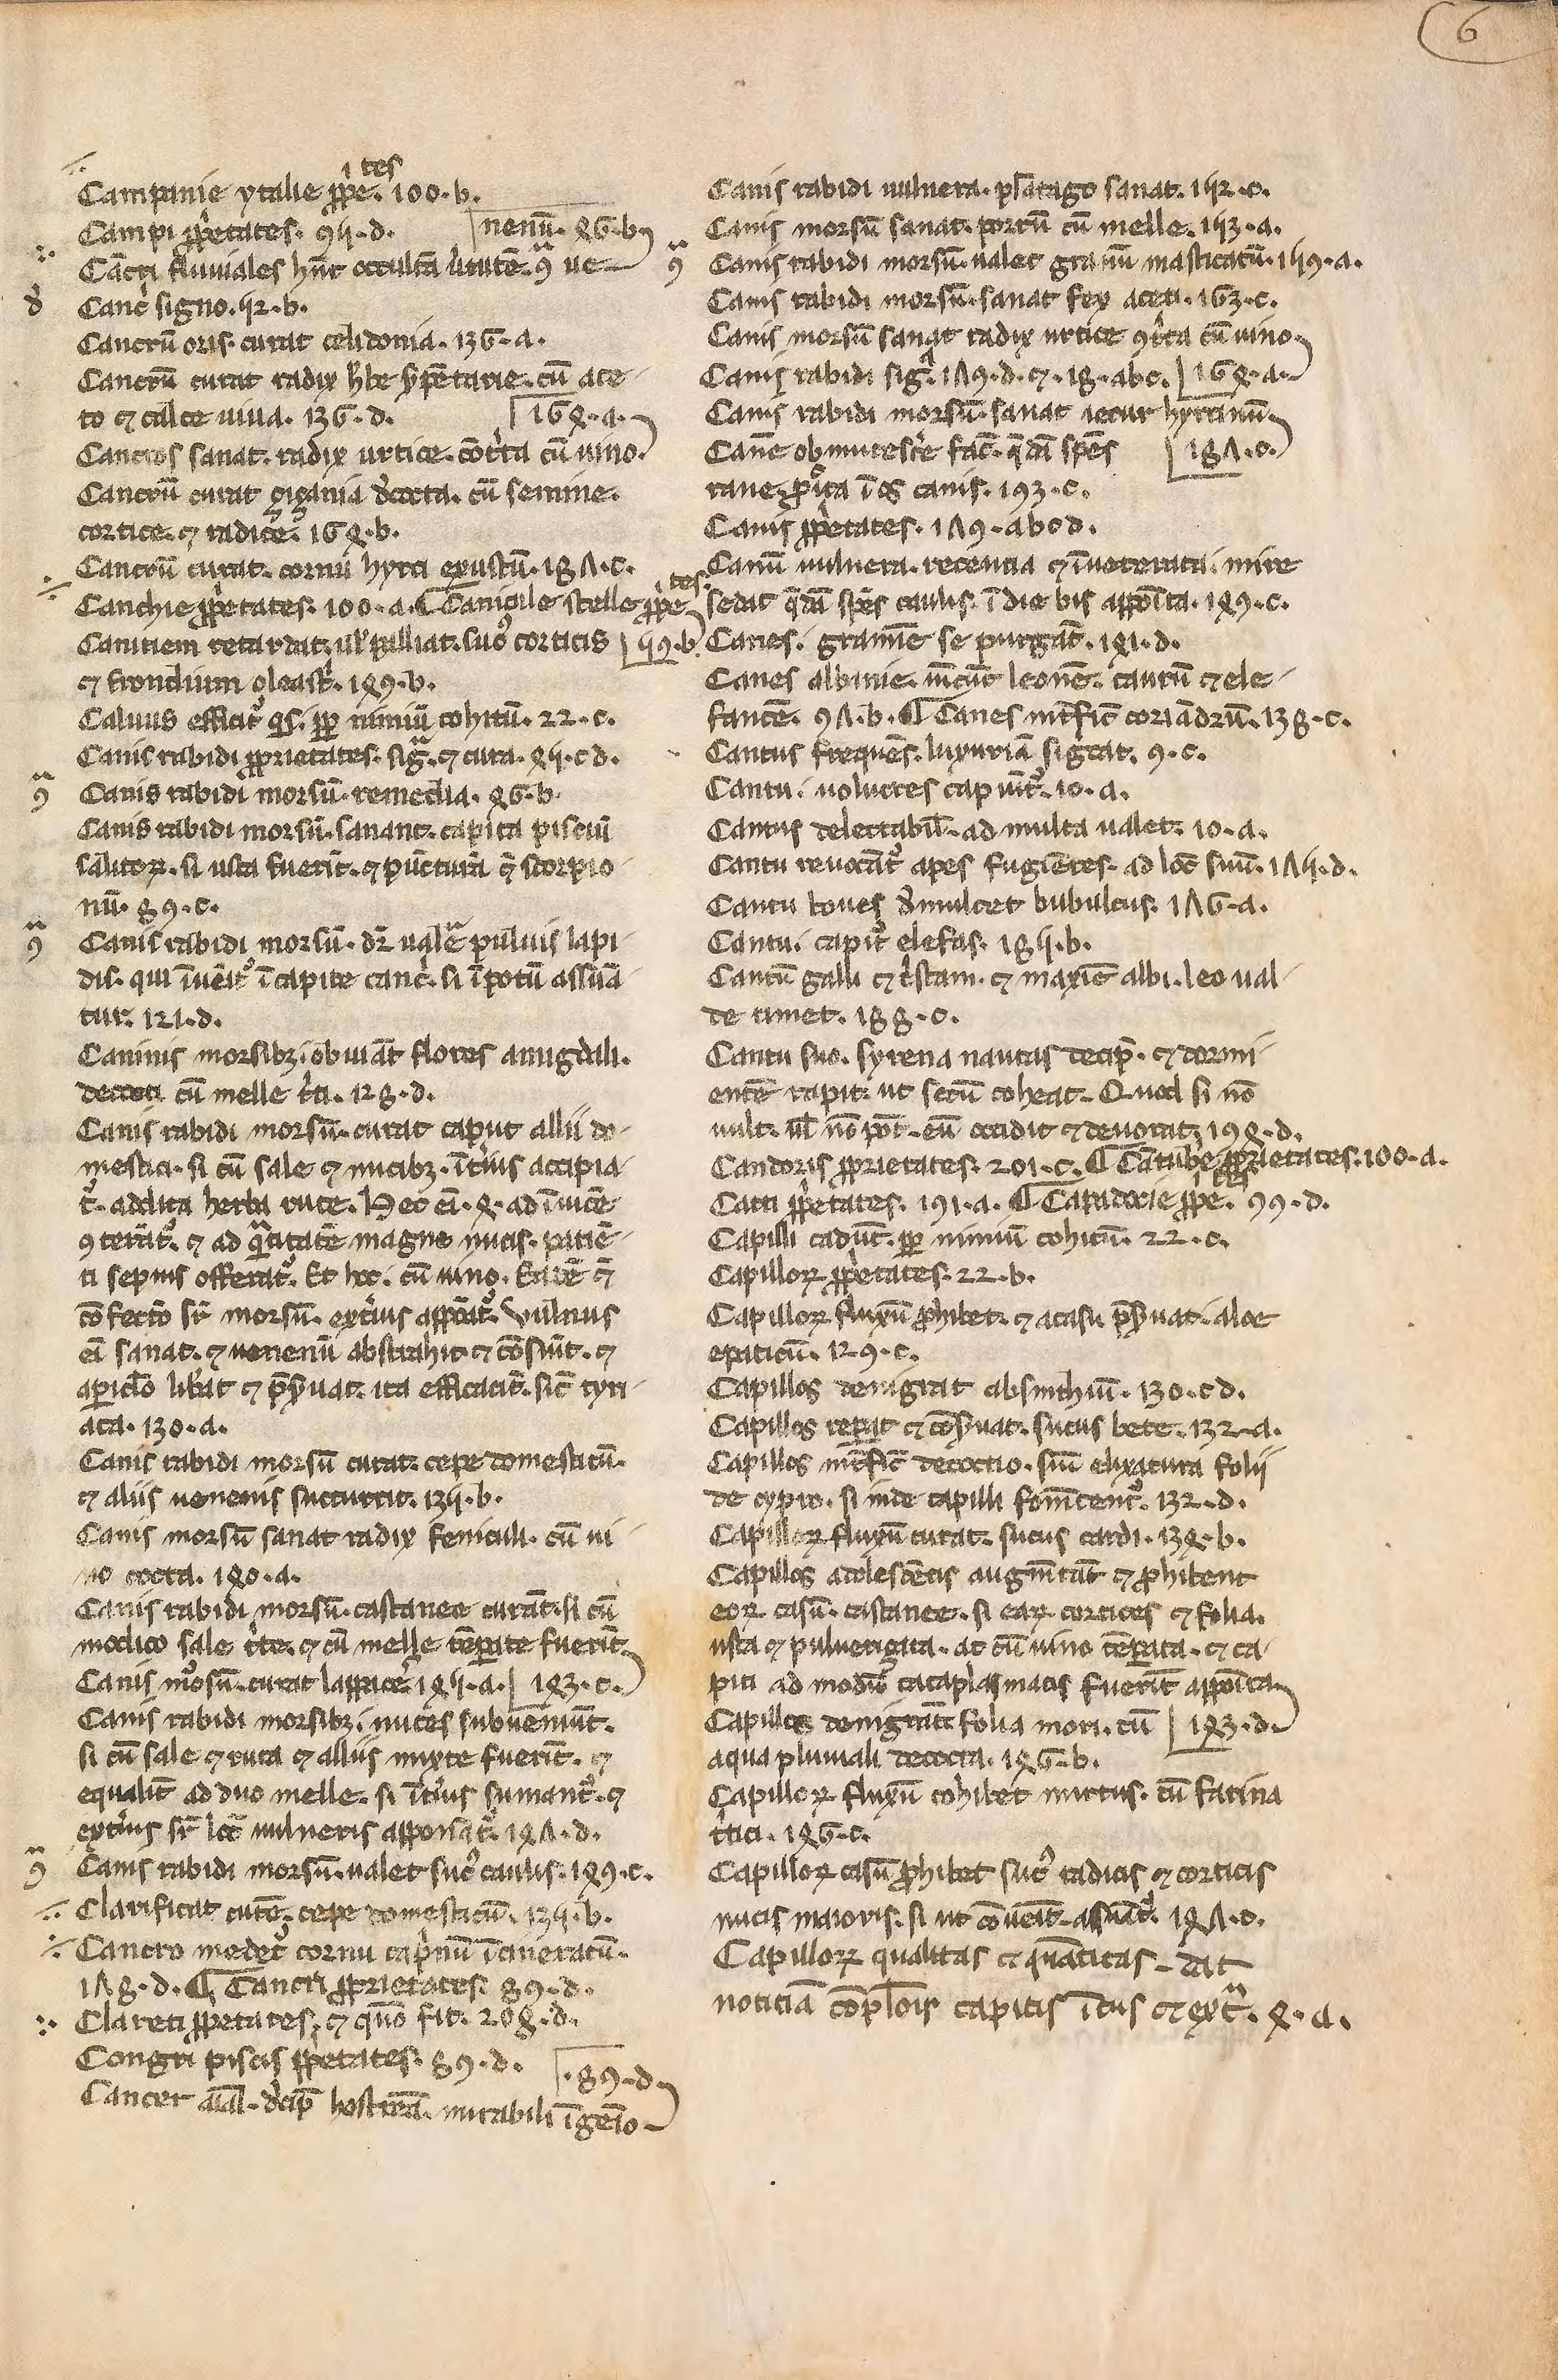 6
Campanie ytalie ꝓpe. 100. b.
ites
Campi ꝓpetates. 94. d.
nenū. 56. b
Cācri fluuiales hn̄t occultā uirtutē ꝯ ue
Canc̄ signo. 42. b.
Cancrū oris. curat celidonia. 136. a.
Cancrū curat radix hͤbe sͤpētarie. cū ace
to ⁊ calce uiua. 136. d.
165. a.
Cancros sanat. radix urtice. cōtͥta cū uino.
Cancrū curat ziçania dͤcocta. cū semine.
cortice. ⁊ radice. 165. b.
Cancrū curat. cornu hyrci exustū. 187. c.
Canchie ꝓpetates. 100. a. ¶ Canicule stelle ꝓpe
ites.
Canitiem retardat. ul̓ palliat. sucꝰ corticis
49. b.
⁊ frondium oleastͥ. 159. b.
Caluus efficitᷣ qͥs. ꝑ nimiū cohitū. 22. c.
Canis rabidi ꝓprietates. sigᷓ. ⁊ cura. 54. cd.
Canis rabidi morsū. remedia. 56. b.
Canis rabidi morsū. sanant. capita pisciū
salitoꝝ. si usta fuerīt. ⁊ pūcturā ꝯͣ scorpio
nū. 89. c.
Canis rabidi morsū. dr̄ ualē puluis lapi
dis. qui īuēitᷣ ī capite canc̄. si ī potū assūa
tur. 121. d.
Caninis morsibꝫ. obuiāt flores amigdali.
decocti cū melle tͥti. 128. d.
Canis rabidi morsū. curat caput allii do
mestici. si cū sale ⁊ nucibꝫ. īteͥius accipia
tᷣ. addita herba rute. Hec eī. 5. ad īuicē
ꝯterātᷣ. ⁊ ad qͣtitatē magne nucis. patiē
ti sepius offeratᷣ. Et hoc. cū uino.
cōfectō sͬ morsū. exteͥius appōatᷣ. Vulnus
eī sanat. ⁊ uenenū abstrahit ⁊ cōsūit. ⁊
a ꝑiclo libͤat ⁊ p̄sͤuat. ita efficacit̄. sic̄ tyri
aca. 130. a.
Canis rabidi morsū curat. cepe domesticū.
⁊ aliis uenenis succurrit. 134. b.
Canis morsū sanat radix feniculi. cū ui
no cocta. 150. a.
Canis rabidi morsū. castanee curāt. si cū
modico sale tͥte. ⁊ cū melle tēꝑate fuerīt.
Canis mōsū. curat lappace. 154. a.
153. c.
Canis rabidi morsibꝫ. nuces subueniūt.
si cū sale ⁊ ruta ⁊ alliis mixte fuerīt. ⁊
equalit̄ ad duo melle. si īteͥius sumantᷣ. ⁊
exteͥius sͬ locū uulneris apponātᷣ. 157. d.
Canis rabidi morsū. ualet sucꝰ caulis. 159. c.
Clarificat cutē. cepe domesticū. 134. b.
Cancro medetᷣ cornu capͥnū īcineratū.
178. d. ¶ Cancri ꝓprietates. 89. d.
Clareti ꝓpetates. ⁊ quō fit. 208. d.
Congri piscis ꝓpetates. 89. d.
89. d.
Cancer aīal. dͤcipͥ hostreā. mirabili īgenio
Canis rabidi uulnera. plātago sanat. 142. c.
Canis morsū sanat. porrū cū melle. 143. a.
Canis rabidi morsū. ualet granū masticatū. 149. a.
Canis rabidi morsū. sanat fex aceti. 163. c.
Canis morsū sanat radix urtice ꝯtͥta cū uino.
Canis rabidi sigᷓ. 179. d. ⁊. 18. abc.
165. a.
Canis rabidi morsū. sanat iecur hyrcinū.
187. c.
Canē obmutescͤe fac̄. qͤdā spēs
rane. ꝓiͨta ī os canis. 193. c.
Canis ꝓpetates. 179. abcd.
Canū uulnera. recentia ⁊ īueterata. mire
sedat qͤdā spēs caulis. ī die bis appōita. 159. c.
Canes. gramīe se purgāt. 151. d.
Canes albanie. uīcūt leonē. taurū ⁊ ele
fantē. 97. b. ¶ Canes īt̄fic̄ coriādrū. 138. c.
Cantus frequēs. luxuriā sigᷓt. 9. c.
Cantu. uolucres capiūtᷣ. 10. a.
Cantus delectabil̄. ad multa ualet. 10. a.
Cantu reuocātᷣ apes fugiētes. ad locū suū. 174. d.
Cantu boues dͤmulcet bubulcus. 176. a.
Cantu. capitᷣ elefas. 184. b.
Cantū galli ⁊ cͥstam. ⁊ maxīe albi. leo ual
de timet. 188. c.
Cantu suo. syrena nautas decipͥ. ⁊ dormi
entē rapit. ut secū coheat. Quod si nō
uult. ul̓ nō pōt. eū occidit ⁊ deuorat. 195. d.
Candoris ꝓprietates. 201. c. ¶ Cātabͥe ꝓprietates. 100. a.
Catti ꝓpetates. 191. a. ¶ Capadocie ꝓpe. 99. d.
tes
Capilli cadūt. ꝑ nimiū cohitū. 22. c.
Capilloꝝ ꝓpetates. 22. b.
Capilloꝝ fluxū ꝓhibet. ⁊ a casu p̄sͤuat. aloe
epaticū. 129. c.
Capillos denigrat absinthiū. 130. cd.
Capillos reꝑat ⁊ cōsͤuat. sucus bete. 132. a.
Capillos īt̄fic̄ decoctio. siue elixatura folii
de cypro. si inde capilli fomētentᷣ. 132. d.
Capilloꝝ fluxū curat. sucus cardi. 135. b.
Capillos adolescētis augmētāt ⁊ ꝓhibent
eoꝝ casū. castanee. si eaꝝ cortices ⁊ folia.
usta ⁊ puluerizata. ac cū uino tēꝑata. ⁊ ca
piti ad modū cataplasmatis fuerīt appōita.
Capillos denigrāt folia mori. cū
153. d.
aqua pluuiali decocta. 156. b.
Capilloꝝ fluxū cohibet mirtus. cū farina
tͥtici. 156. c.
Capilloꝝ casū ꝓhibet sucꝰ radicis ⁊ corticis
nucis maioris. si ut cōuēit. assūatᷣ. 157. c.
Capilloꝝ qualitas ⁊ quātitas. dat
noticiā cōplōis capitis ītus ⁊ extͣ. 5. a.